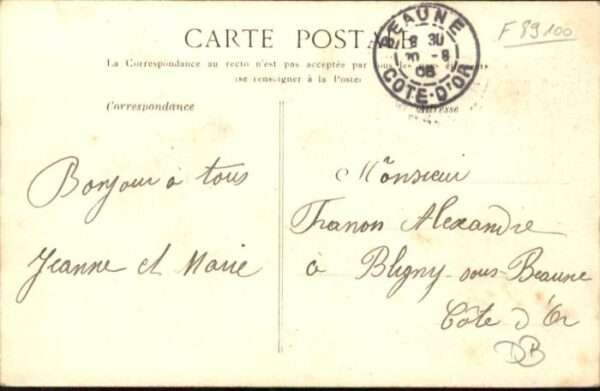 F 89100
CARTE POSTALE
La Correspondance au recto n'est pas acceptée par tous les pays
(se renseigner à la Poste)
BEAUNE
8 30
8
08
COTE-D'OR
Correspondance
Adresse
Bonjour a tous
Jeanne et Marie
Monsieur
Franon Alexandre
à Bligny-sous-Beaune
Côte d'Or
DB